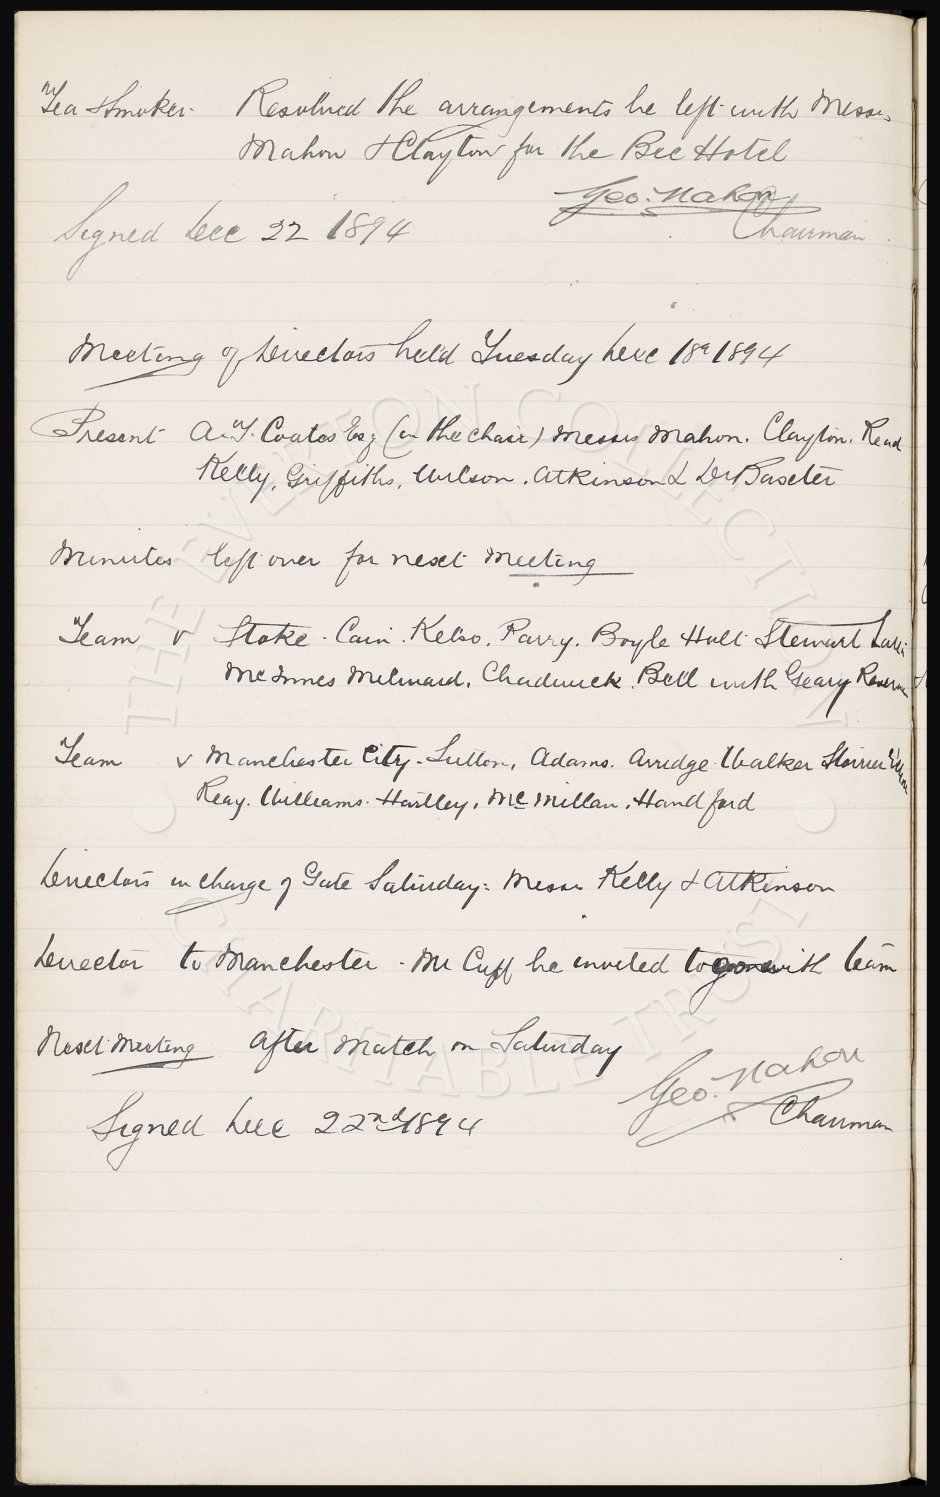 Tea & Smoker. Resolved the arrangements be left with Messrs
Mahon & Clayton for the Bee Hotel
Geo. Mahon
Signed Dec 22 1894 Chairman
Meeting of Directors held Tuesday Dec 18th 1894
Present A.T. Coates Esq (in the chair) Messrs Mahon. Clayton. Read
Kelly, Griffiths, Wilson. Atkinson & Dr Baxter
Minutes left over for next Meeting
Team v Stoke - Cain. Kelso. Parry. Boyle Holt Stewart Latta
McInnes Milward. Chadwick. Bell with Geary Reserve
Team v Manchester City - Sutton, Adams. Arridge Walker Storrier
Reay. Williams. Hartley, McMillan, Handford
Directors in charge of Gate Saturday: Messrs Kelly & Atkinson
Director to Manchester - Mr Cuff be invited to go with team
Next Meeting After Match on Saturday
Geo. Mahon
Signed Dec 22nd 1894 Chairman
THE EVERTON COLLECTION
CHARITABLE TRUST